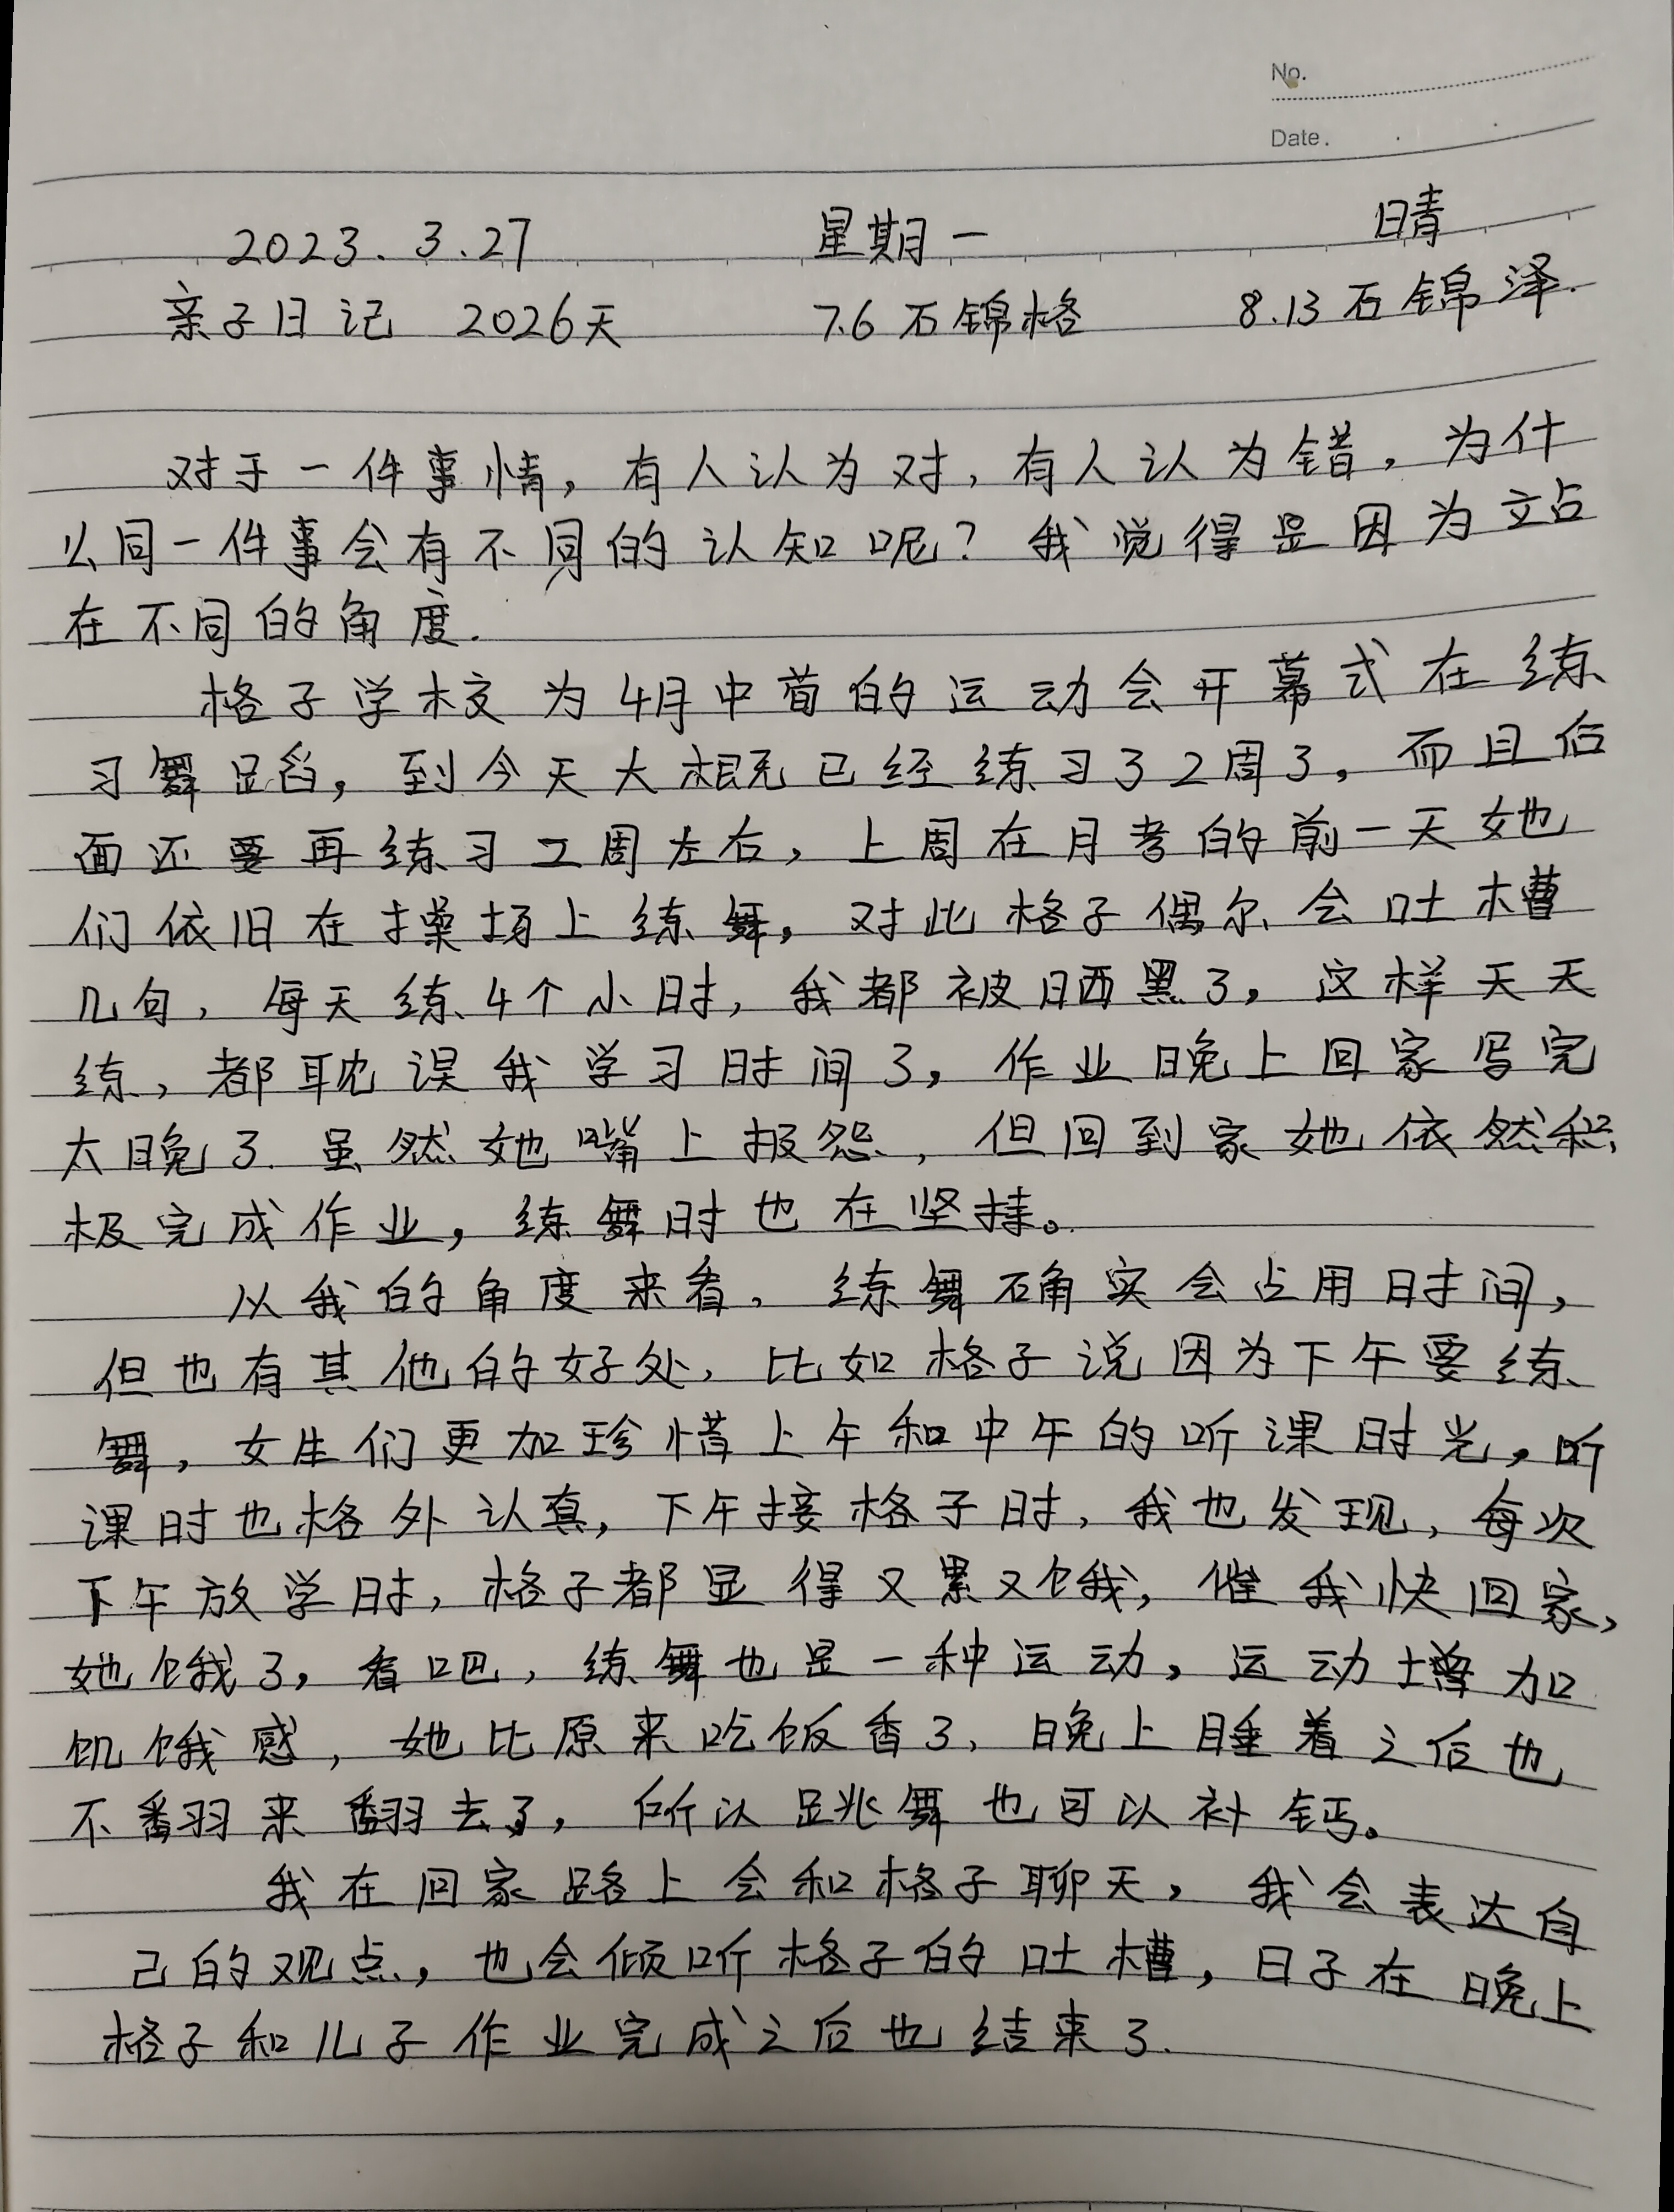 No.
Date.
2023.3.27 星期一 晴
亲子日记 2026天 7.6石锦格 8.13石锦泽.
对于一件事情，有人认为对，有人认为错，为什
么同一件事会有不同的认知呢？我觉得是因为站
在不同的角度.
格子学校为4月中旬的运动会开幕式在练
习舞蹈，到今天大概已经练习了2周了，而且后
面还要再练习二周左右，上周在月考的前一天她
们依旧在操场上练舞，对此格子偶尔会吐槽
几句，每天练4个小时，我都被晒黑了，这样天天
练，都耽误我学习时间了，作业晚上回家写完
太晚了.虽然她嘴上报怨，但回到家她依然积
极完成作业，练舞时也在坚持。
从我的角度来看，练舞确实会占用时间，
但也有其他的好处，比如格子说因为下午要练
舞，女生们更加珍惜上午和中午的听课时光，听
课时也格外认真，下午接格子时，我也发现，每次
下午放学时，格子都显得又累又饿，催我快回家，
她饿了，看吧，练舞也是一种运动，运动增加
饥饿感，她比原来吃饭香了，晚上睡着之后也
不翻来翻去了，所以跳舞也可以补钙。
我在回家路上会和格子聊天，我会表达自
己的观点，也会倾听格子的吐槽，日子在晚上
格子和儿子作业完成之后也结束了.